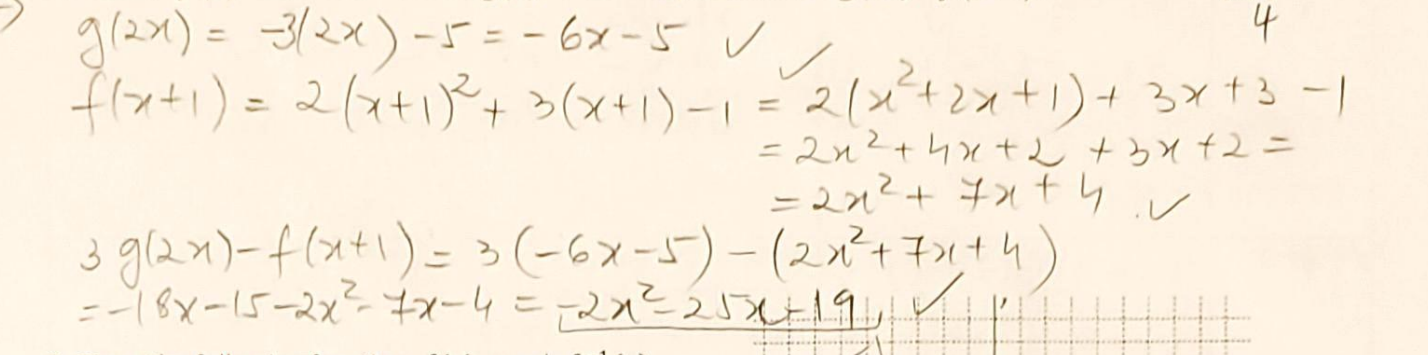 g(2x) = -3(2x) - 5 = -6x - 5 ✓ 4
f(x+1) = 2(x+1)² + 3(x+1) - 1 = 2(x² + 2x + 1) + 3x + 3 - 1 ✓
= 2x² + 4x + 2 + 3x + 2 =
= 2x² + 7x + 4 . ✓
3 g(2x) - f(x+1) = 3(-6x - 5) - (2x² + 7x + 4)
= -18x - 15 - 2x² - 7x - 4 = -2x² - 25x - 19, ✓